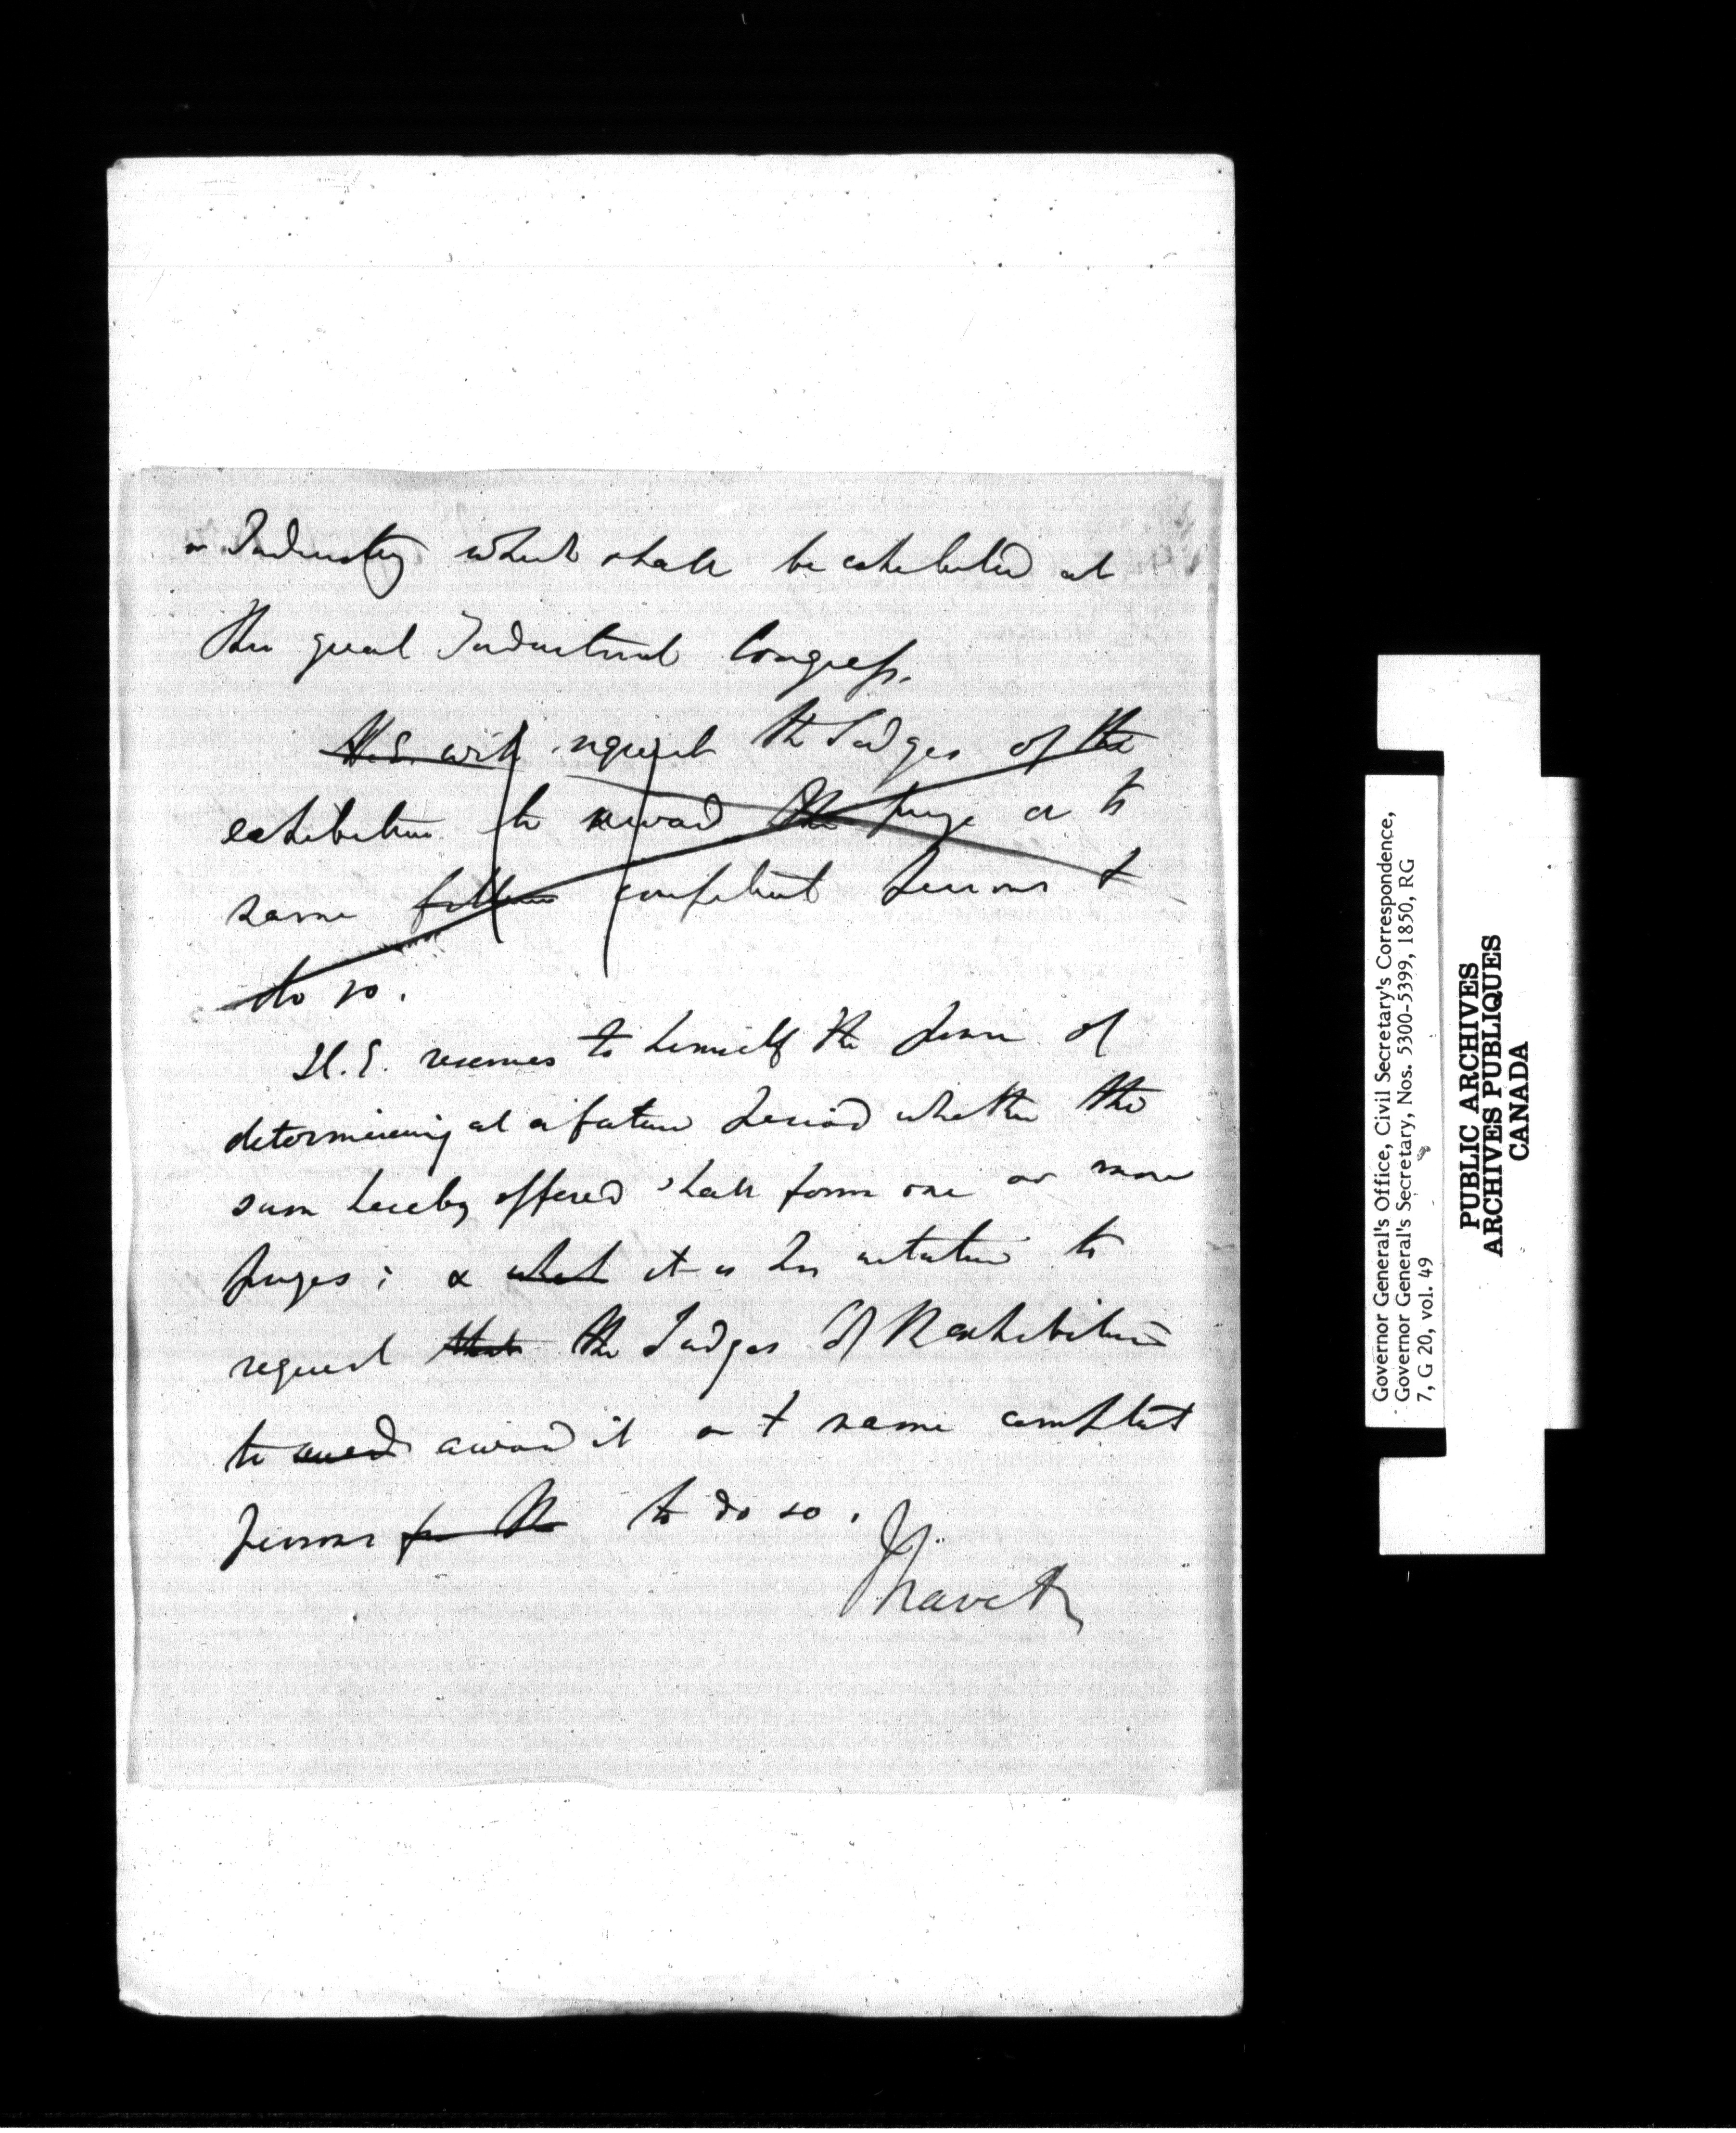 or Industry which shall be exhibited at
this great Industrial Congress.
H.E. will request the Judges of the
exhibition to award the prize or to
name competent persons to
do so.
H.E. reserves to himself the power of
determining at a future period whether the
sum hereby offered shall form one or more
prizes; & it is his intention to
request that the Judges of the exhibition
to award it or to name competent
persons for the to do so.
Governor General's Office, Civil Secretary's Correspondence,
Governor General's Secretary, Nos. 5300-5399, 1850, RG
7, G 20, vol. 49
PUBLIC ARCHIVES
ARCHIVES PUBLIQUES
CANADA